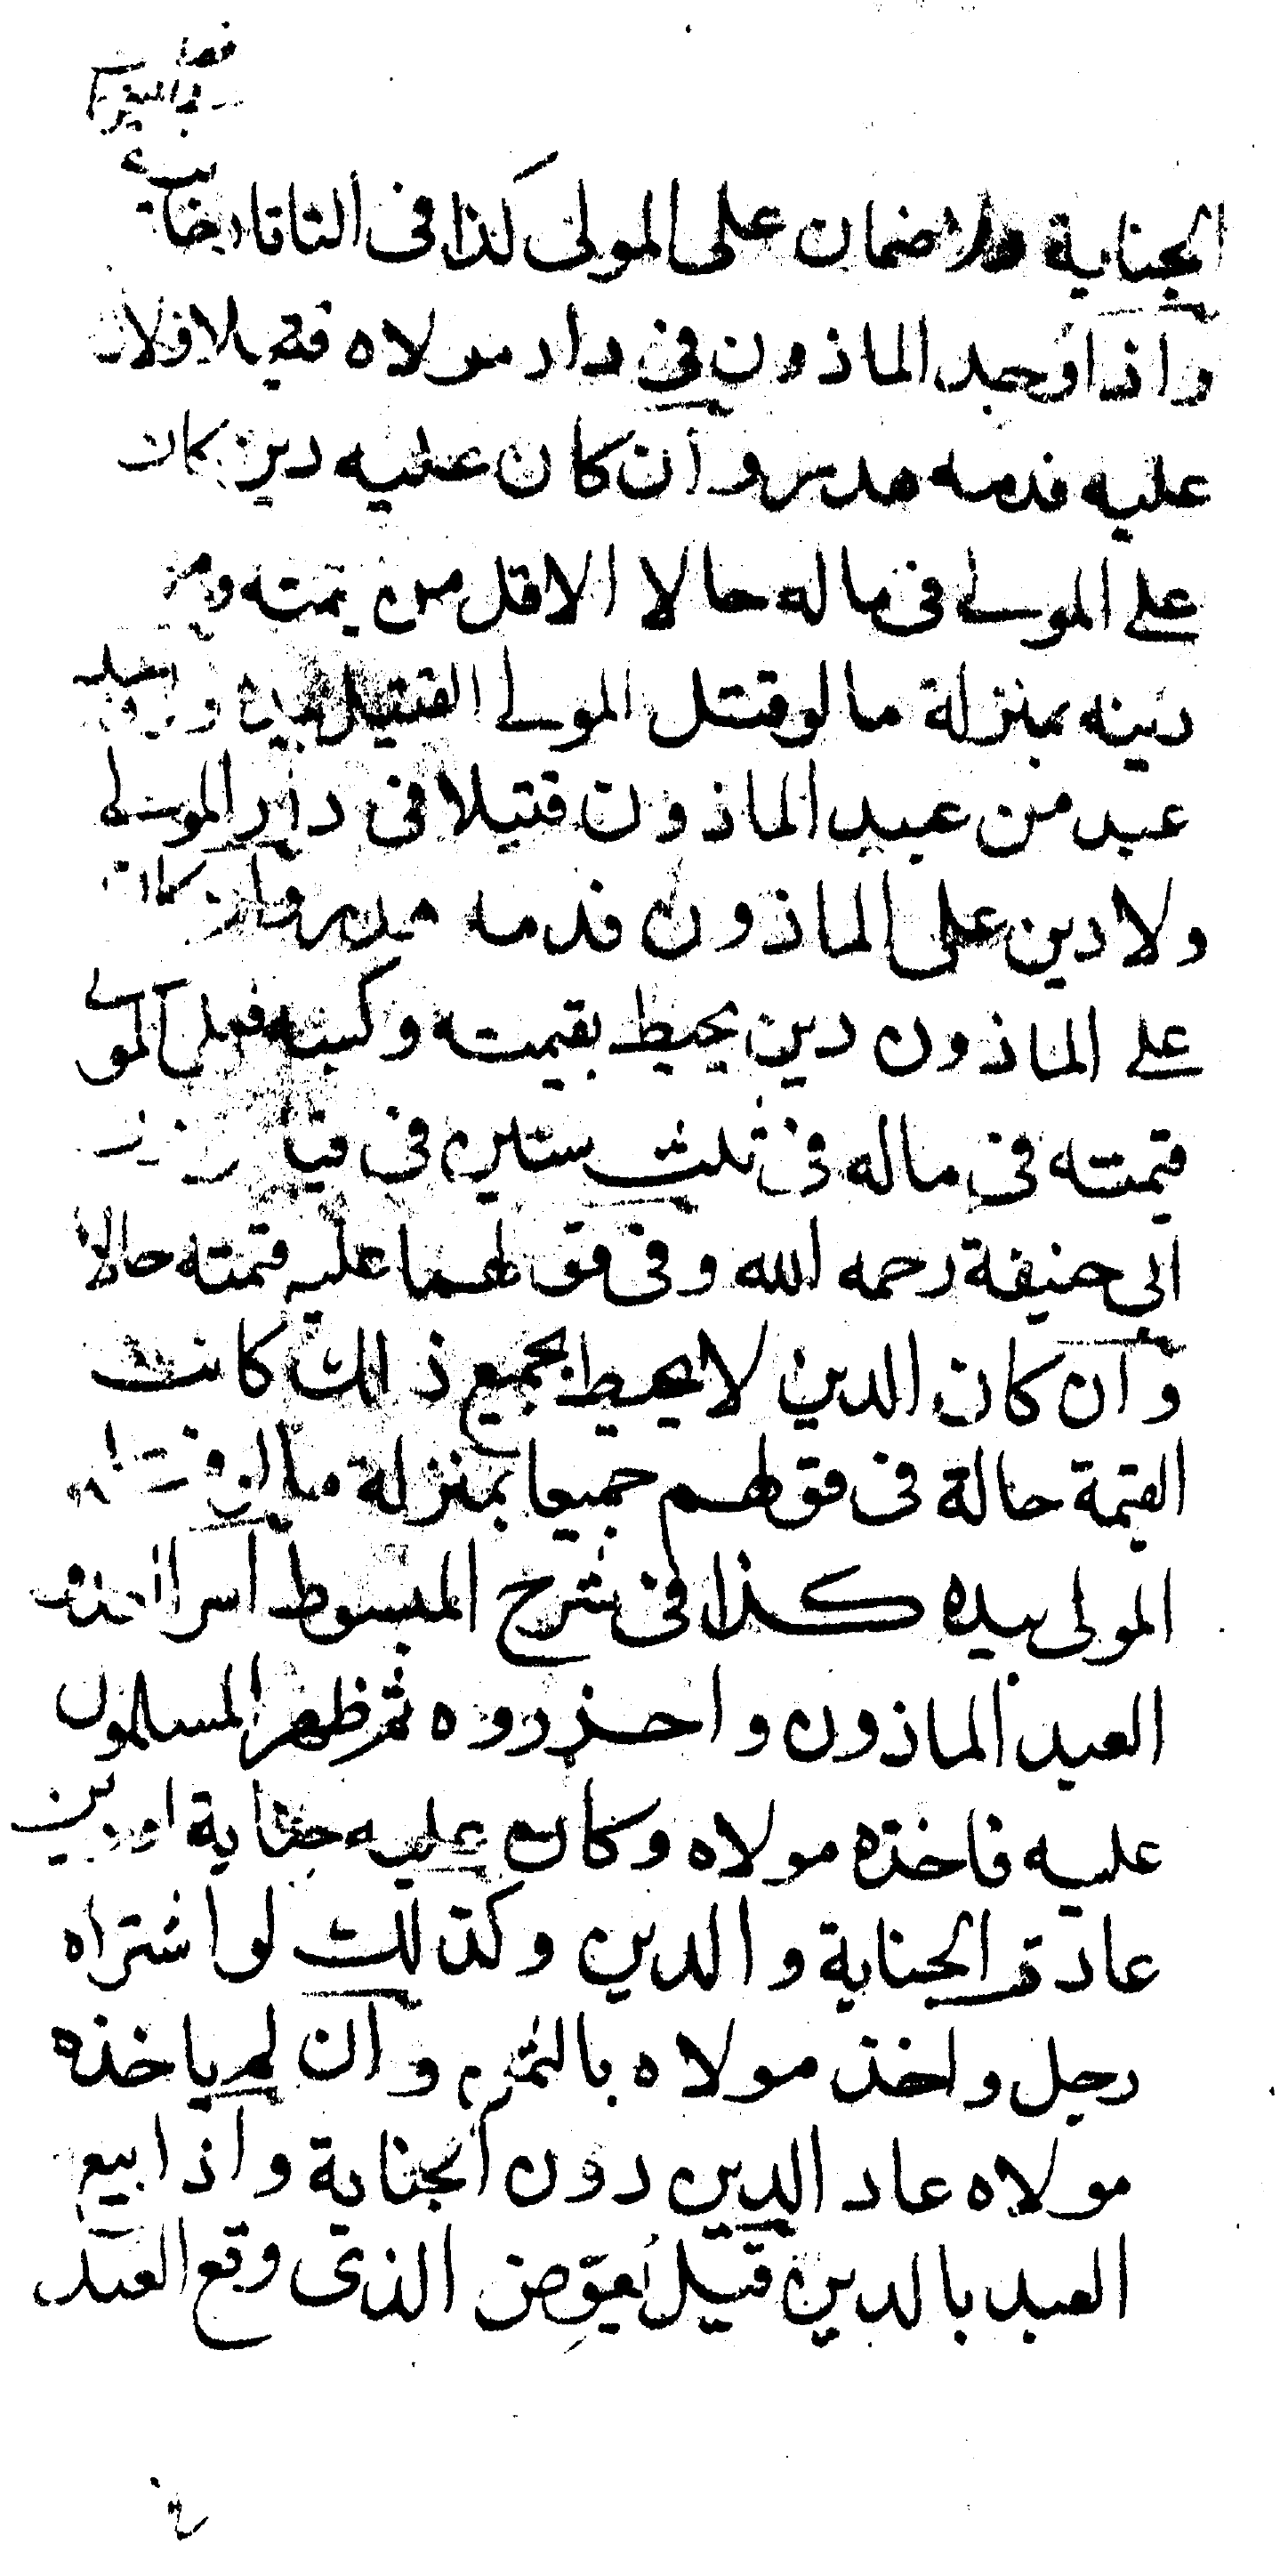 الجناية ولا ضمان على المولى كذا فى التاتارخانية
واذا وجد الماذون في دار مولاه قتيلا ولا دين
عليه فدمه هدر وان كان عليه دين كان
على المولى فى ماله حالا الاقل من قيمته ومن
دينه بمنزلة ما لو قتل المولى القتيل بيده ولو وجد
عبد من عبيد الماذون قتيلا فى دار المولى
ولا دين على الماذون فدمه هدر وان كان
على الماذون دين يحيط بقيمته وكسبه فعلى المولى
قيمته فى ماله فى ثلث سنين فى قياس
ابى حنيفة رحمه الله وفى قولهما عليه قيمته حالا
وان كان الدين لا يحيط بجميع ذلك كانت
القيمة حالة فى قولهم جميعا بمنزلة ما لو قتله
المولى بيده كذا فى شرح المبسوط اسر العدو
العبد الماذون واحرزوه ثم ظهر المسلمون
عليه فاخذه مولاه وكان عليه جناية او دين
عادة الجناية والدين وكذلك لو اشتراه
رجل واخذ مولاه بالثمن وان لم ياخذه
مولاه عاد الدين دون الجناية واذا بيع
العبد بالدين قيل يعوّض الذى وقع العبد